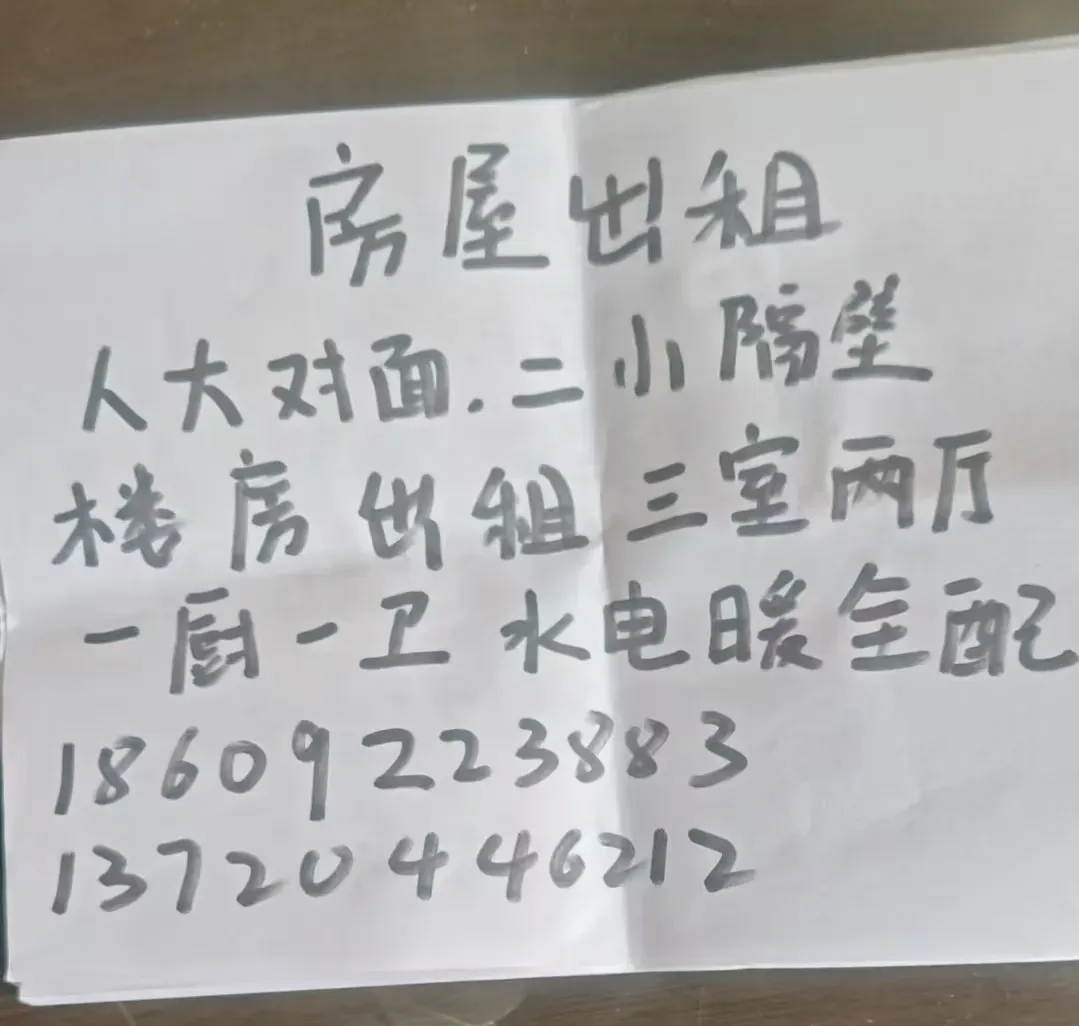 房屋出租
人大对面.二小隔壁
楼房出租三室两厅
一厨一卫水电暖全配
18609223883
13720446212